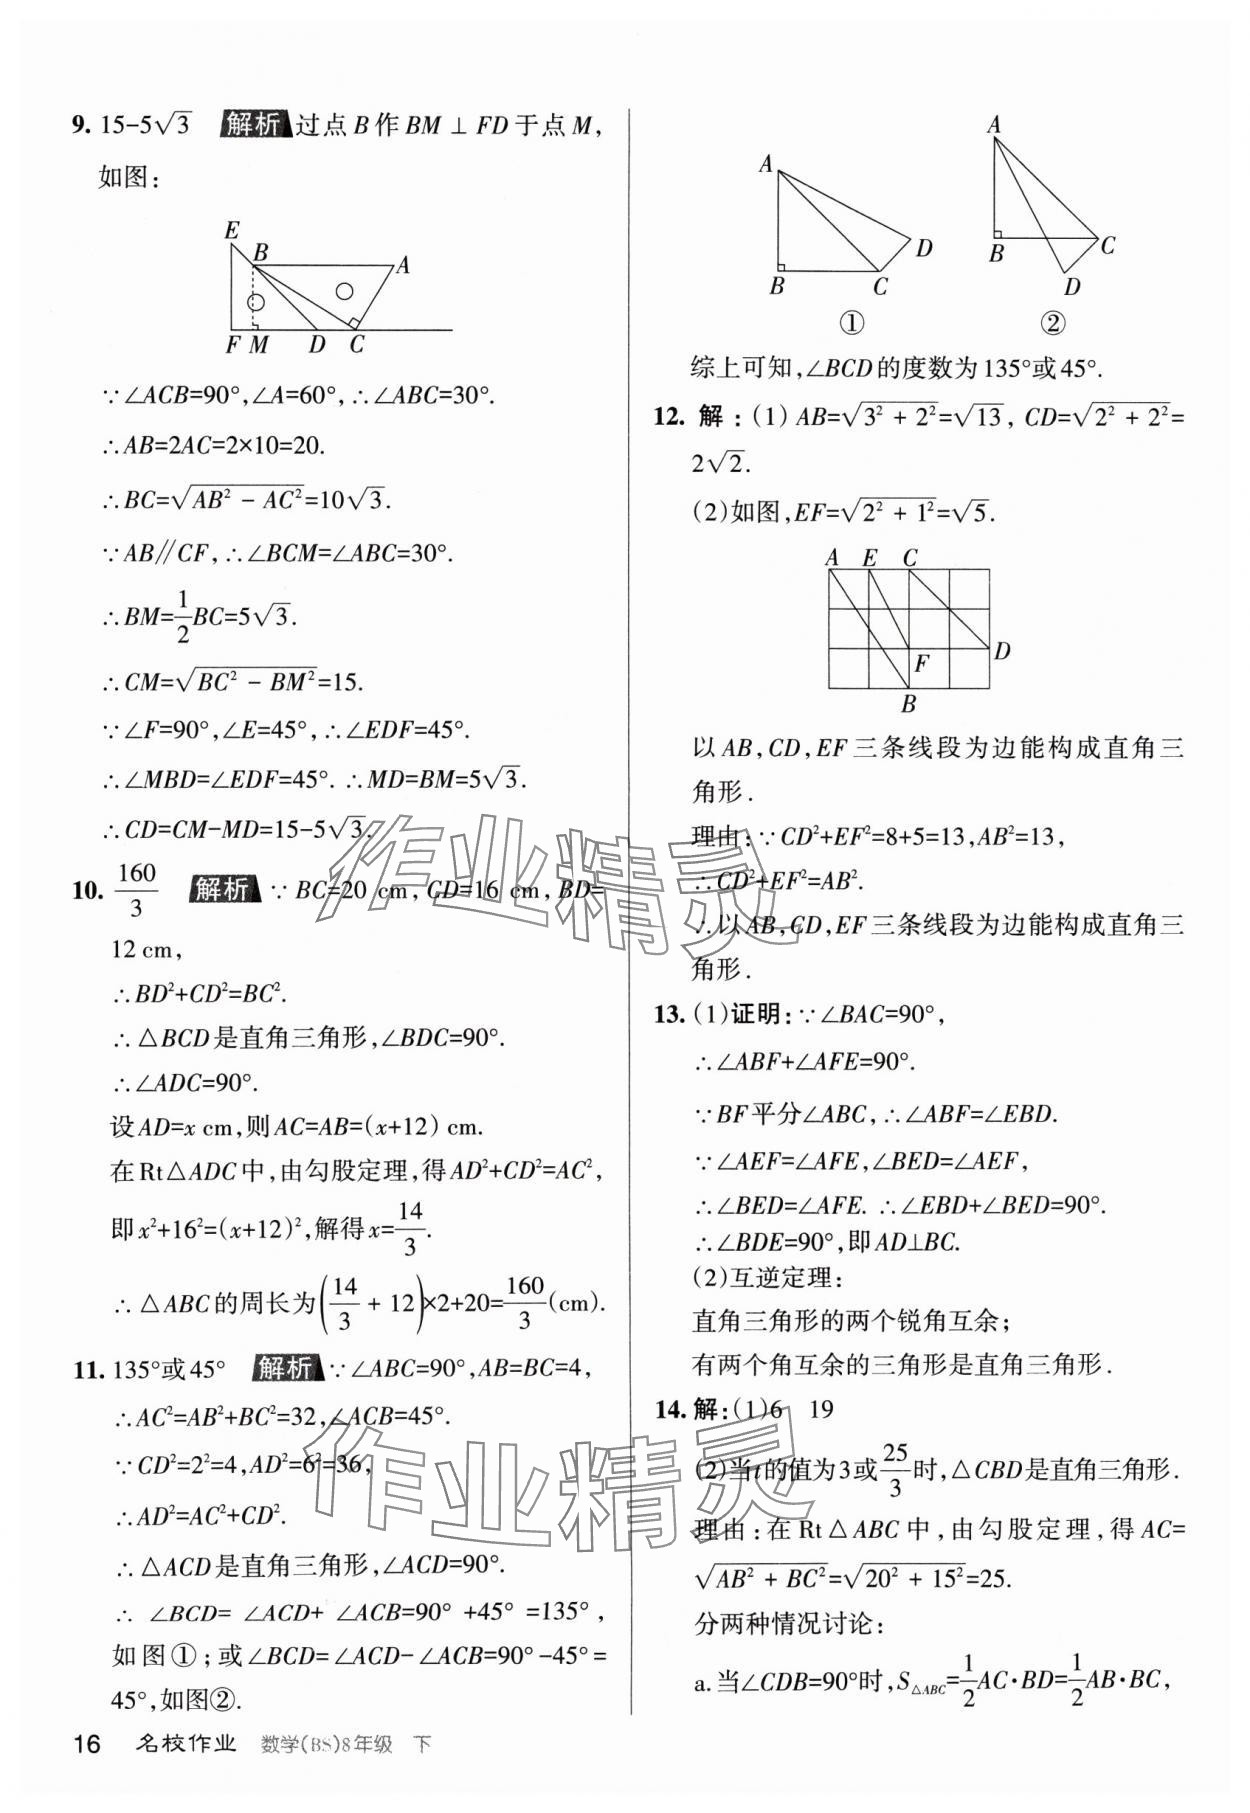 9. 15-5√3 解析 过点B作BM⊥FD于点M,
如图:
E
B
A
F M D C
∵∠ACB=90°,∠A=60°,∴∠ABC=30°.
∴AB=2AC=2×10=20.
∴BC=√(AB²-AC²)=10√3.
∵AB∥CF,∴∠BCM=∠ABC=30°.
∴BM=1/2BC=5√3.
∴CM=√(BC²-BM²)=15.
∵∠F=90°,∠E=45°,∴∠EDF=45°.
∴∠MBD=∠EDF=45°.∴MD=BM=5√3.
∴CD=CM-MD=15-5√3.
10. 160/3 解析 ∵BC=20 cm,CD=16 cm,BD=
12 cm,
∴BD²+CD²=BC².
∴△BCD是直角三角形,∠BDC=90°.
∴∠ADC=90°.
设AD=x cm,则AC=AB=(x+12) cm.
在Rt△ADC中,由勾股定理,得AD²+CD²=AC²,
即x²+16²=(x+12)²,解得x=14/3.
∴△ABC的周长为(14/3+12)×2+20=160/3(cm).
11. 135°或45° 解析 ∵∠ABC=90°,AB=BC=4,
∴AC²=AB²+BC²=32,∠ACB=45°.
∵CD²=2²=4,AD²=6²=36,
∴AD²=AC²+CD².
∴△ACD是直角三角形,∠ACD=90°.
∴∠BCD=∠ACD+∠ACB=90°+45°=135°,
如图①;或∠BCD=∠ACD-∠ACB=90°-45°=
45°,如图②.
16 名校作业 数学(BS)8年级 下
A
D
B C
①
A
B C
D
②
综上可知,∠BCD的度数为135°或45°.
12. 解:(1)AB=√(3²+2²)=√13,CD=√(2²+2²)=
2√2.
(2)如图,EF=√(2²+1²)=√5.
A E C
F D
B
以AB,CD,EF三条线段为边能构成直角三
角形.
理由:∵CD²+EF²=8+5=13,AB²=13,
∴CD²+EF²=AB².
∴以AB,CD,EF三条线段为边能构成直角三
角形.
13. (1)证明:∵∠BAC=90°,
∴∠ABF+∠AFE=90°.
∵BF平分∠ABC,∴∠ABF=∠EBD.
∵∠AEF=∠AFE,∠BED=∠AEF,
∴∠BED=∠AFE.∴∠EBD+∠BED=90°.
∴∠BDE=90°,即AD⊥BC.
(2)互逆定理:
直角三角形的两个锐角互余;
有两个角互余的三角形是直角三角形.
14. 解:(1)6 19
(2)当t的值为3或25/3时,△CBD是直角三角形.
理由:在Rt△ABC中,由勾股定理,得AC=
√(AB²+BC²)=√(20²+15²)=25.
分两种情况讨论:
a.当∠CDB=90°时,S△ABC=1/2AC·BD=1/2AB·BC,
作业精灵
作业精灵